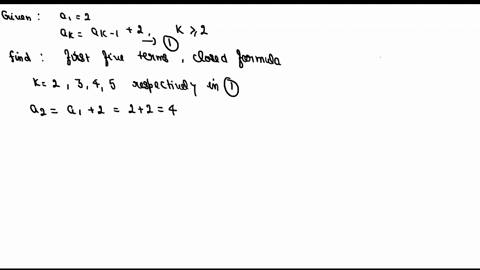 Given: a₁ = 2
aₖ = aₖ₋₁ + 2, k ≥ 2
→ ①
find: first five terms, closed formula
k = 2, 3, 4, 5 respectively in ①
a₂ = a₁ + 2 = 2+2 = 4